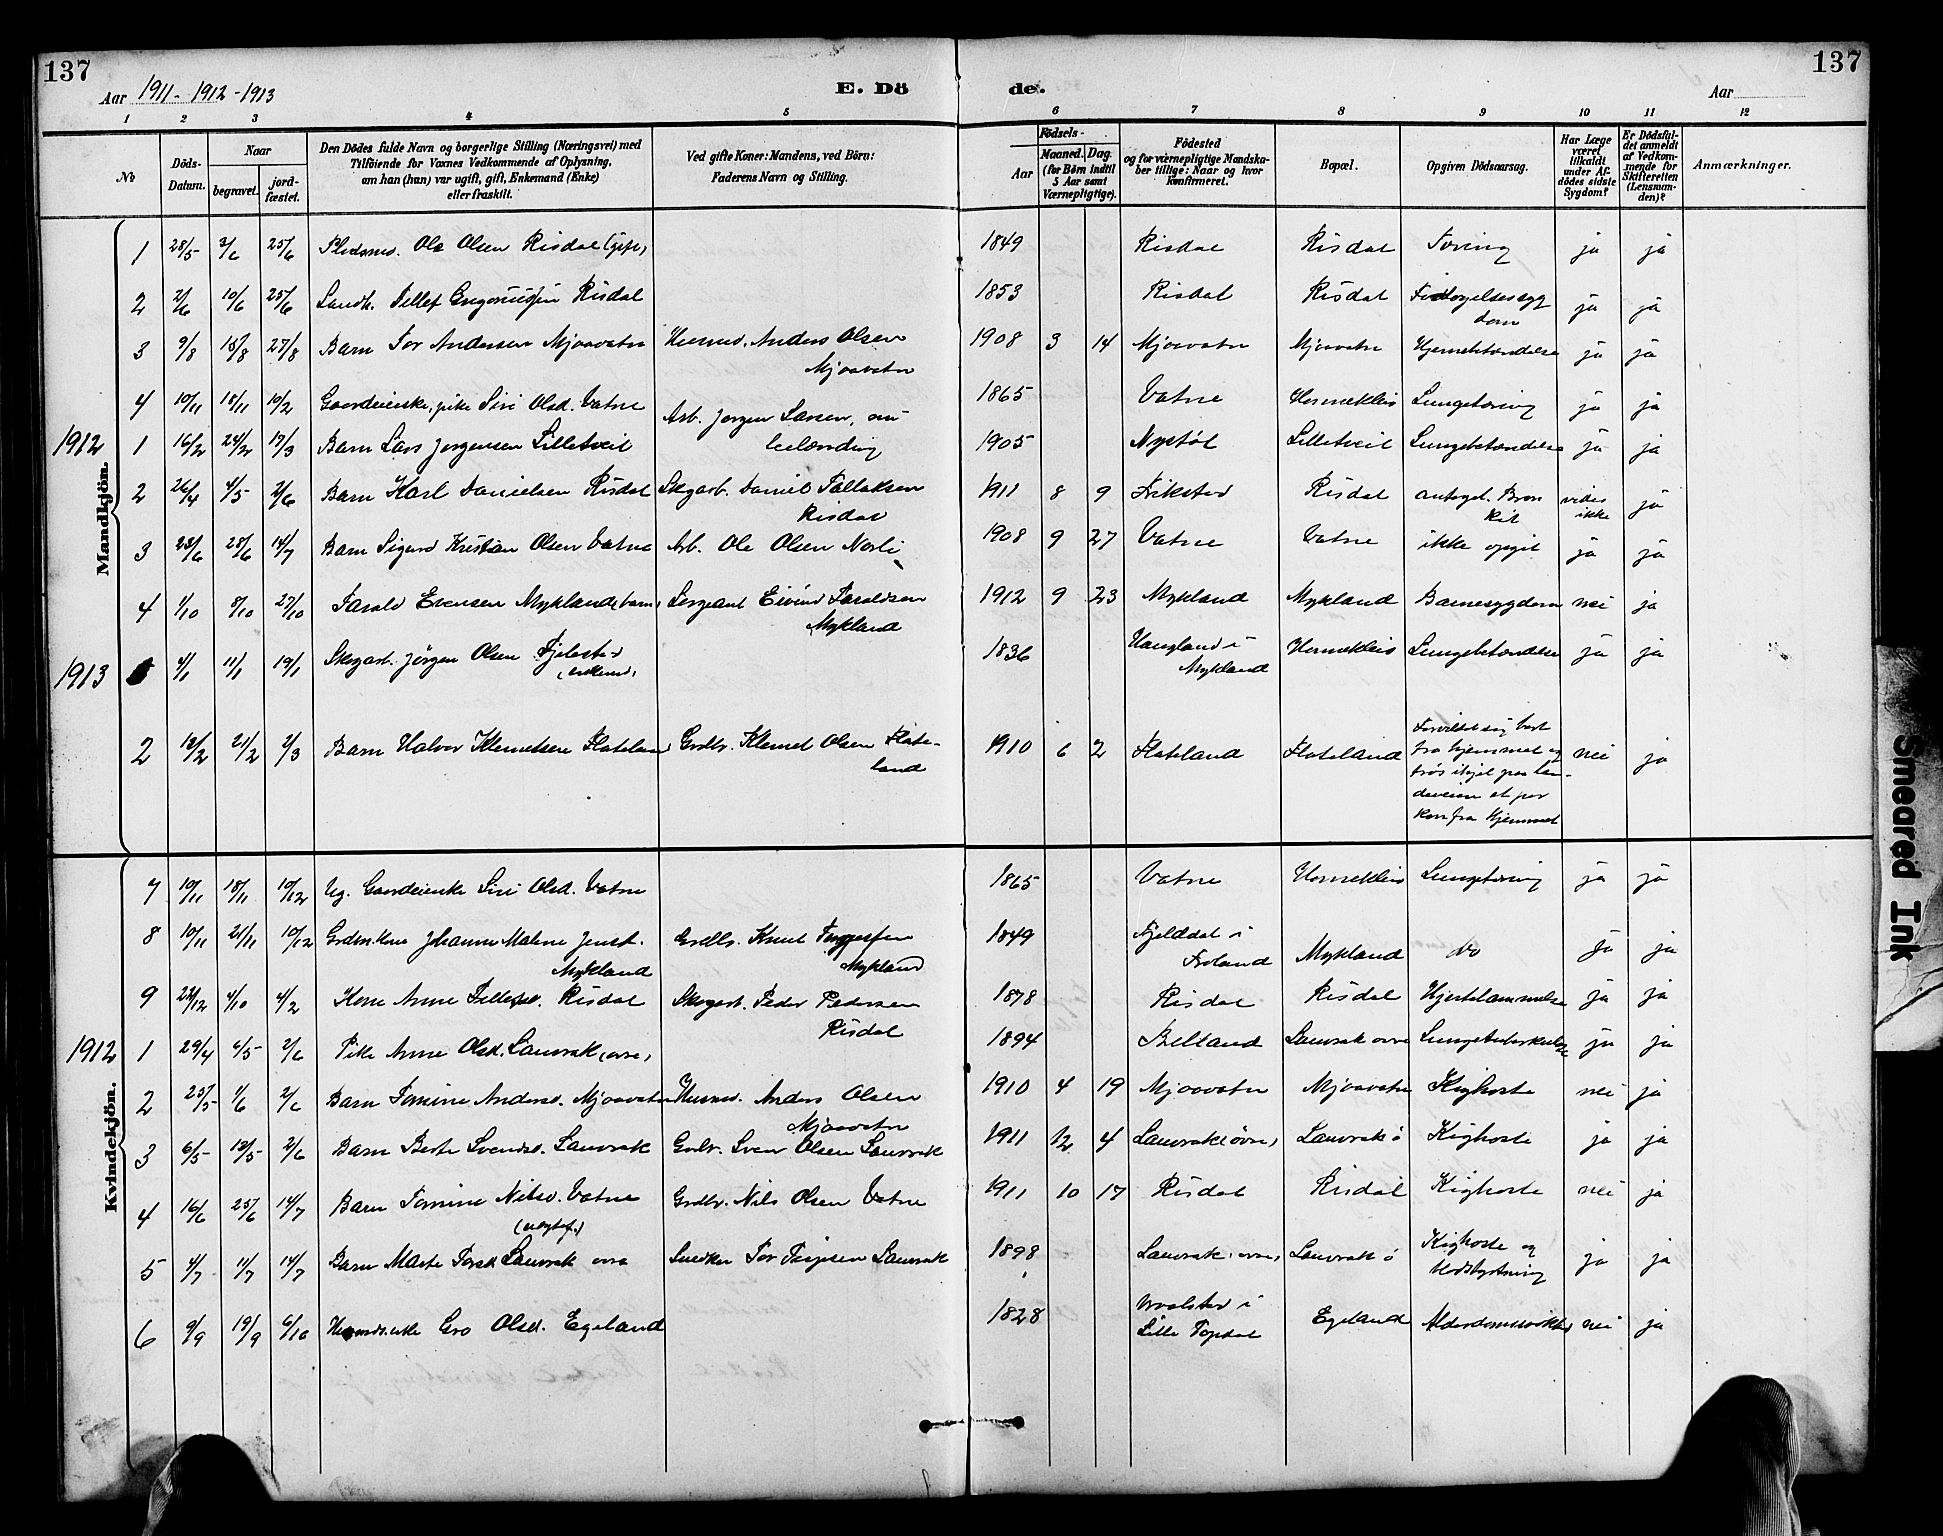 137
137
Aar 1911 - 1912 - 1913
E. Dö
de.
Aar
1 2 3 4 5 6 7 8 9 10 11 12
No
Döds-Datum.
Naar
begravet.
jord-fæstet.
Den Dödes fulde Navn og borgerlige Stilling (Næringsvei) med
Tilföiende for Voxnes Vedkommende af Oplysning,
om han (hun) var ugift, gift, Enkemand (Enke)
eller fraskilt.
Ved gifte Koner: Mandens, ved Börn:
Faderens Navn og Stilling.
Födsels-
Aar
Maaned. Dag.
(for Börn indtil
5 Aar samt
Værnepligtige).
Födested
og for værnepligtige Mandska-
ber tillige: Naar og hvor
konfirmeret.
Bopæl.
Opgiven Dödsaarsag.
Har Læge
været
tilkaldt
under Af-
dödes sidste
Sygdom?
Er Dödsfal-
det anmeldt
af Vedkom-
mende for
Skifteretten
(Lensman-
den)?
Anmærkninger.
Mandkjön.
1 28/5 3/6 25/6 Ole Olsen Risdal (gift) 1849 Risdal Risdal Tæring ja ja
2 2/6 10/6 25/6 Landh. Tellef Risdal 1853 Risdal Risdal ja ja
3 9/8 15/8 27/8 Barn Tor Andersen Mjaavatn Husmd. Anders Olsen 1908 3 14 Mjaavatn Mjaavatn Hjernebetændelse ja ja
Mjaavatn
4 10/11 18/11 10/2 Gaardeierske, pike Siri Olsd. Vatne 1865 Vatne Hornekleiv Lungetæring ja ja
1912 1 16/2 24/2 17/3 Barn Lars Jørgensen Lilletveit Arb. Jørgen Larsen, 1905 Nystøl Lilletveit Lungebetændelse ja ja
2 26/4 4/5 2/6 Barn Karl Danielsen Risdal Skogarb. Daniel Tallaksen 1911 8 9 Risdal antagel. Bron vides ja
Risdal kit ikke
3 23/6 28/6 14/7 Barn Sigurd Kristian Olsen Vatne Arb. Ole Olsen Norli 1908 9 27 Vatne Vatne ikke opgit ja ja
4 1/10 8/10 27/10 Tarald Evensen Mykland, barn, Sergeant Eivind Taraldsen 1912 9 23 Mykland Mykland Barnesygdom nei ja
Mykland
1913 4/1 11/1 19/1 Skogarb. Jörgen Olsen (enkem) 1836 Haugland i Hornekleiv Lungebetændelse ja ja
Mykland
2 12/2 21/2 2/3 Barn Halvor Klemetsen Flateland Grdbr. Klemet Olsen Flate- 1910 6 2 Flateland Flateland Forvildet sig bort nei ja
land
fra hjemmet og
frøs ihjel paa lan-
deveien et par
km fra Hjemmet
Kvindekjön.
7 10/11 18/11 10/12 Ug. Gaardeierske Siri Olsd. Vatne 1865 Vatne Hornekleiv Lungetæring ja ja
8 10/11 21/11 10/12 Johanne Malene Jensd. Grdbr. Knut 1849 Mjelddal i Mykland do ja ja
Mykland Mykland Froland
9 4/10 4/2 Kone Anne Tellefsd. Risdal Skogarb. Peder Pedersen 1878 Risdal Risdal Hjertelammelse ja ja
Risdal
1912 1 29/4 6/5 2/6 Pike Anne Olsd. Lauvrak (øvre) 1894 Belland Lauvrak øvre Lungetuberkulose ja ja
2 25/5 1/6 2/6 Barn Tomine Andersd. Mjaavatn Husmd. Anders Olsen 1910 4 19 Mjaavatn Mjaavatn Kighoste nei ja
Mjaavatn
3 6/5 12/5 2/6 Barn Berte Svendsd. Lauvrak Grdbr. Sven Olsen Lauvrak 1911 12 4 Lauvrak (øvre) Lauvrak ö Kighoste ja ja
4 16/6 25/6 14/7 Barn Tomine Nilsd. Vatne Grdbr. Nils Olsen Vatne 1911 10 17 Risdal Risdal Kighoste nei ja
5 4/7 11/7 14/7 Barn Marte Torsd. Lauvrak øvre Snedker Tor Lauvrak 1898 Lauvrak (øvre) Lauvrak ö Kighoste og ja ja
6 9/9 19/9 6/10 Gro Olsd. Egeland 1828 i Egeland Alderdomssvakhet nei ja
Lille Topdal
Smeared Ink